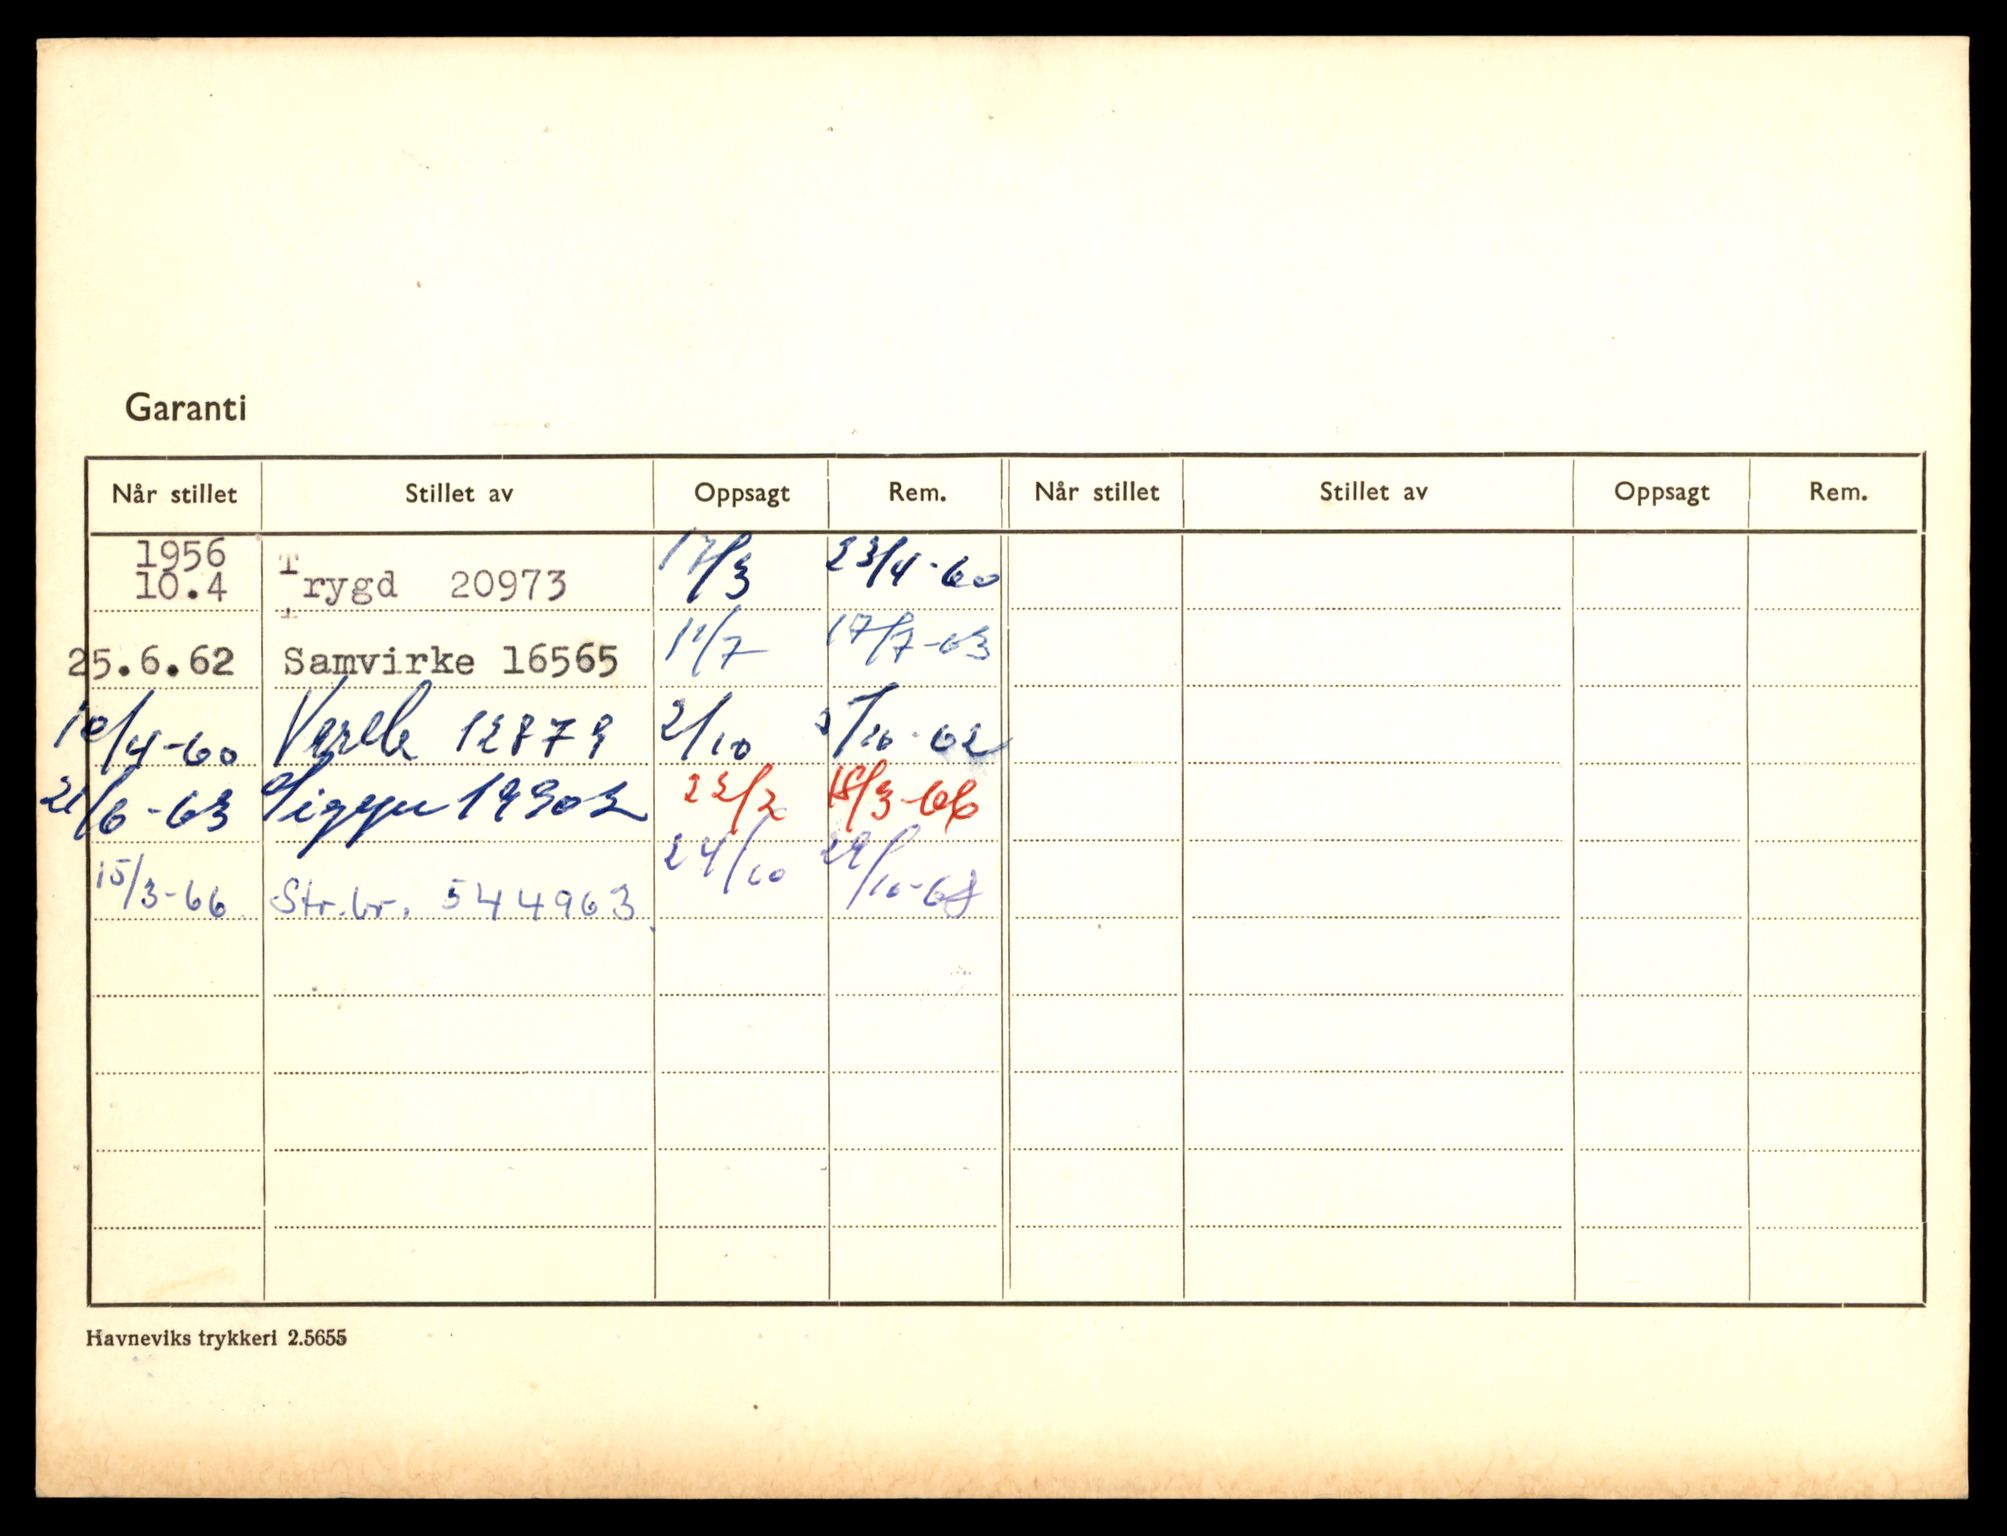 Garanti
Når stillet Stillet av Oppsagt Rem. Når stillet Stillet av Oppsagt Rem.
1956
10.4 Trygd 20973 17/3 23/4-60
25.6.62 Samvirke 16565 11/7 17/7-63
10/4-60 12879 2/10 /10-62
21/6-63 19902 22/2 18/3-66
15/3-66 Str.br. 544963 24/10 29/10-68
Havneviks trykkeri 2.5655